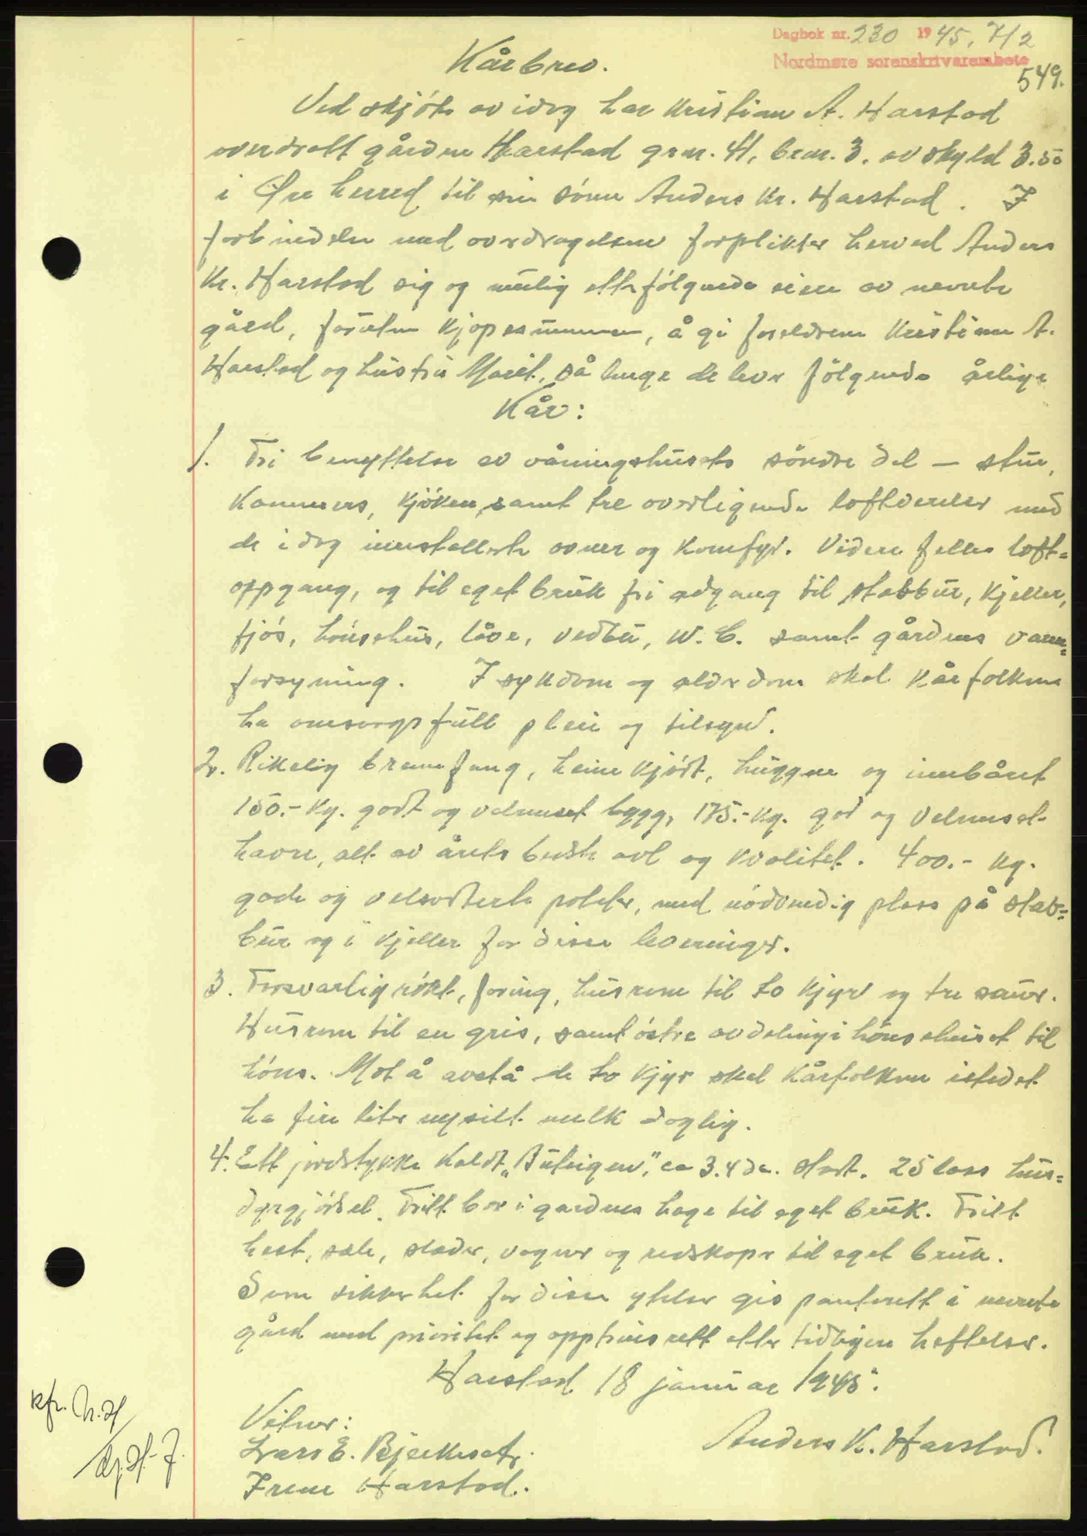 Dagbok nr. 230 1945, 7/2
Nordmøre sorenskriverembete
549.
Kårbrev.
Ved skjöte av idag har Kristian A. Harstad
overdratt gården Harstad gnr. 41, bnr. 3, av skyld 3.50
i Øre herred til sin sönn Anders Kr. Harstad. I
forbindelse med overdragelsen forplikter herved Anders
Kr. Harstad sig og mulig etterfölgende eiere av nevnte
gård, foruten kjöpesummen, å gi foreldrene Kristian A.
Harstad og hustru Marit, så lenge de lever fölgende årlige
Kår:
1. Fri benyttelse av våningshusets söndre del — stue,
kammers, kjöken, samt tre overliggende loftverelser med
de i dag innstallerte ovner og komfyr. Videre felles loft-
oppgang, og til eget bruk fri adgang til stabbur, kjeller,
fjös, hönsehus, låve, vedbu, W.C. samt gårdens vann-
forsyning. I sykdom og alderdom skal kårfolkene
ha omsorgsfull pleie og tilsyn.
2. Rikelig brennfang, heimkjört, hugget og innbåret
150.- kg. godt og velrenset bygg, 175.- kg. god og velrenset
havre, alt av årets beste avl og kvalitet. 400.- kg.
gode og velsorterte poteter, med nödvendig plass på stab-
bur og i kjeller for disse leveringer.
3. Forsvarlig rökt, foring, husrom til to kjyr og tre sauer.
Husrom til en gris, samt östre avdeling i hönsehuset til
höns. Mot å avstå de to kjyr skal kårfolkene istedet
ha fire liter nysilt melk daglig.
4. Ett jordstykke kaldt "Buteigen", ca 3.4 da. stort. 25 lass hus-
dyrgjödsel. Fritt bær i gardens hage til eget bruk. Fritt
hest, sele, sleder, vogner og redskaper til eget bruk.
Som sikkerhet for disse ytelser gis panterett i nevnte
gård med prioritet og opptrinsrett etter tidligere heftelser.
Harstad 18 januar 1945.
Vitner:
Lars E. Bjerkeset,
Irene Harstad.
Anders K. Harstad.